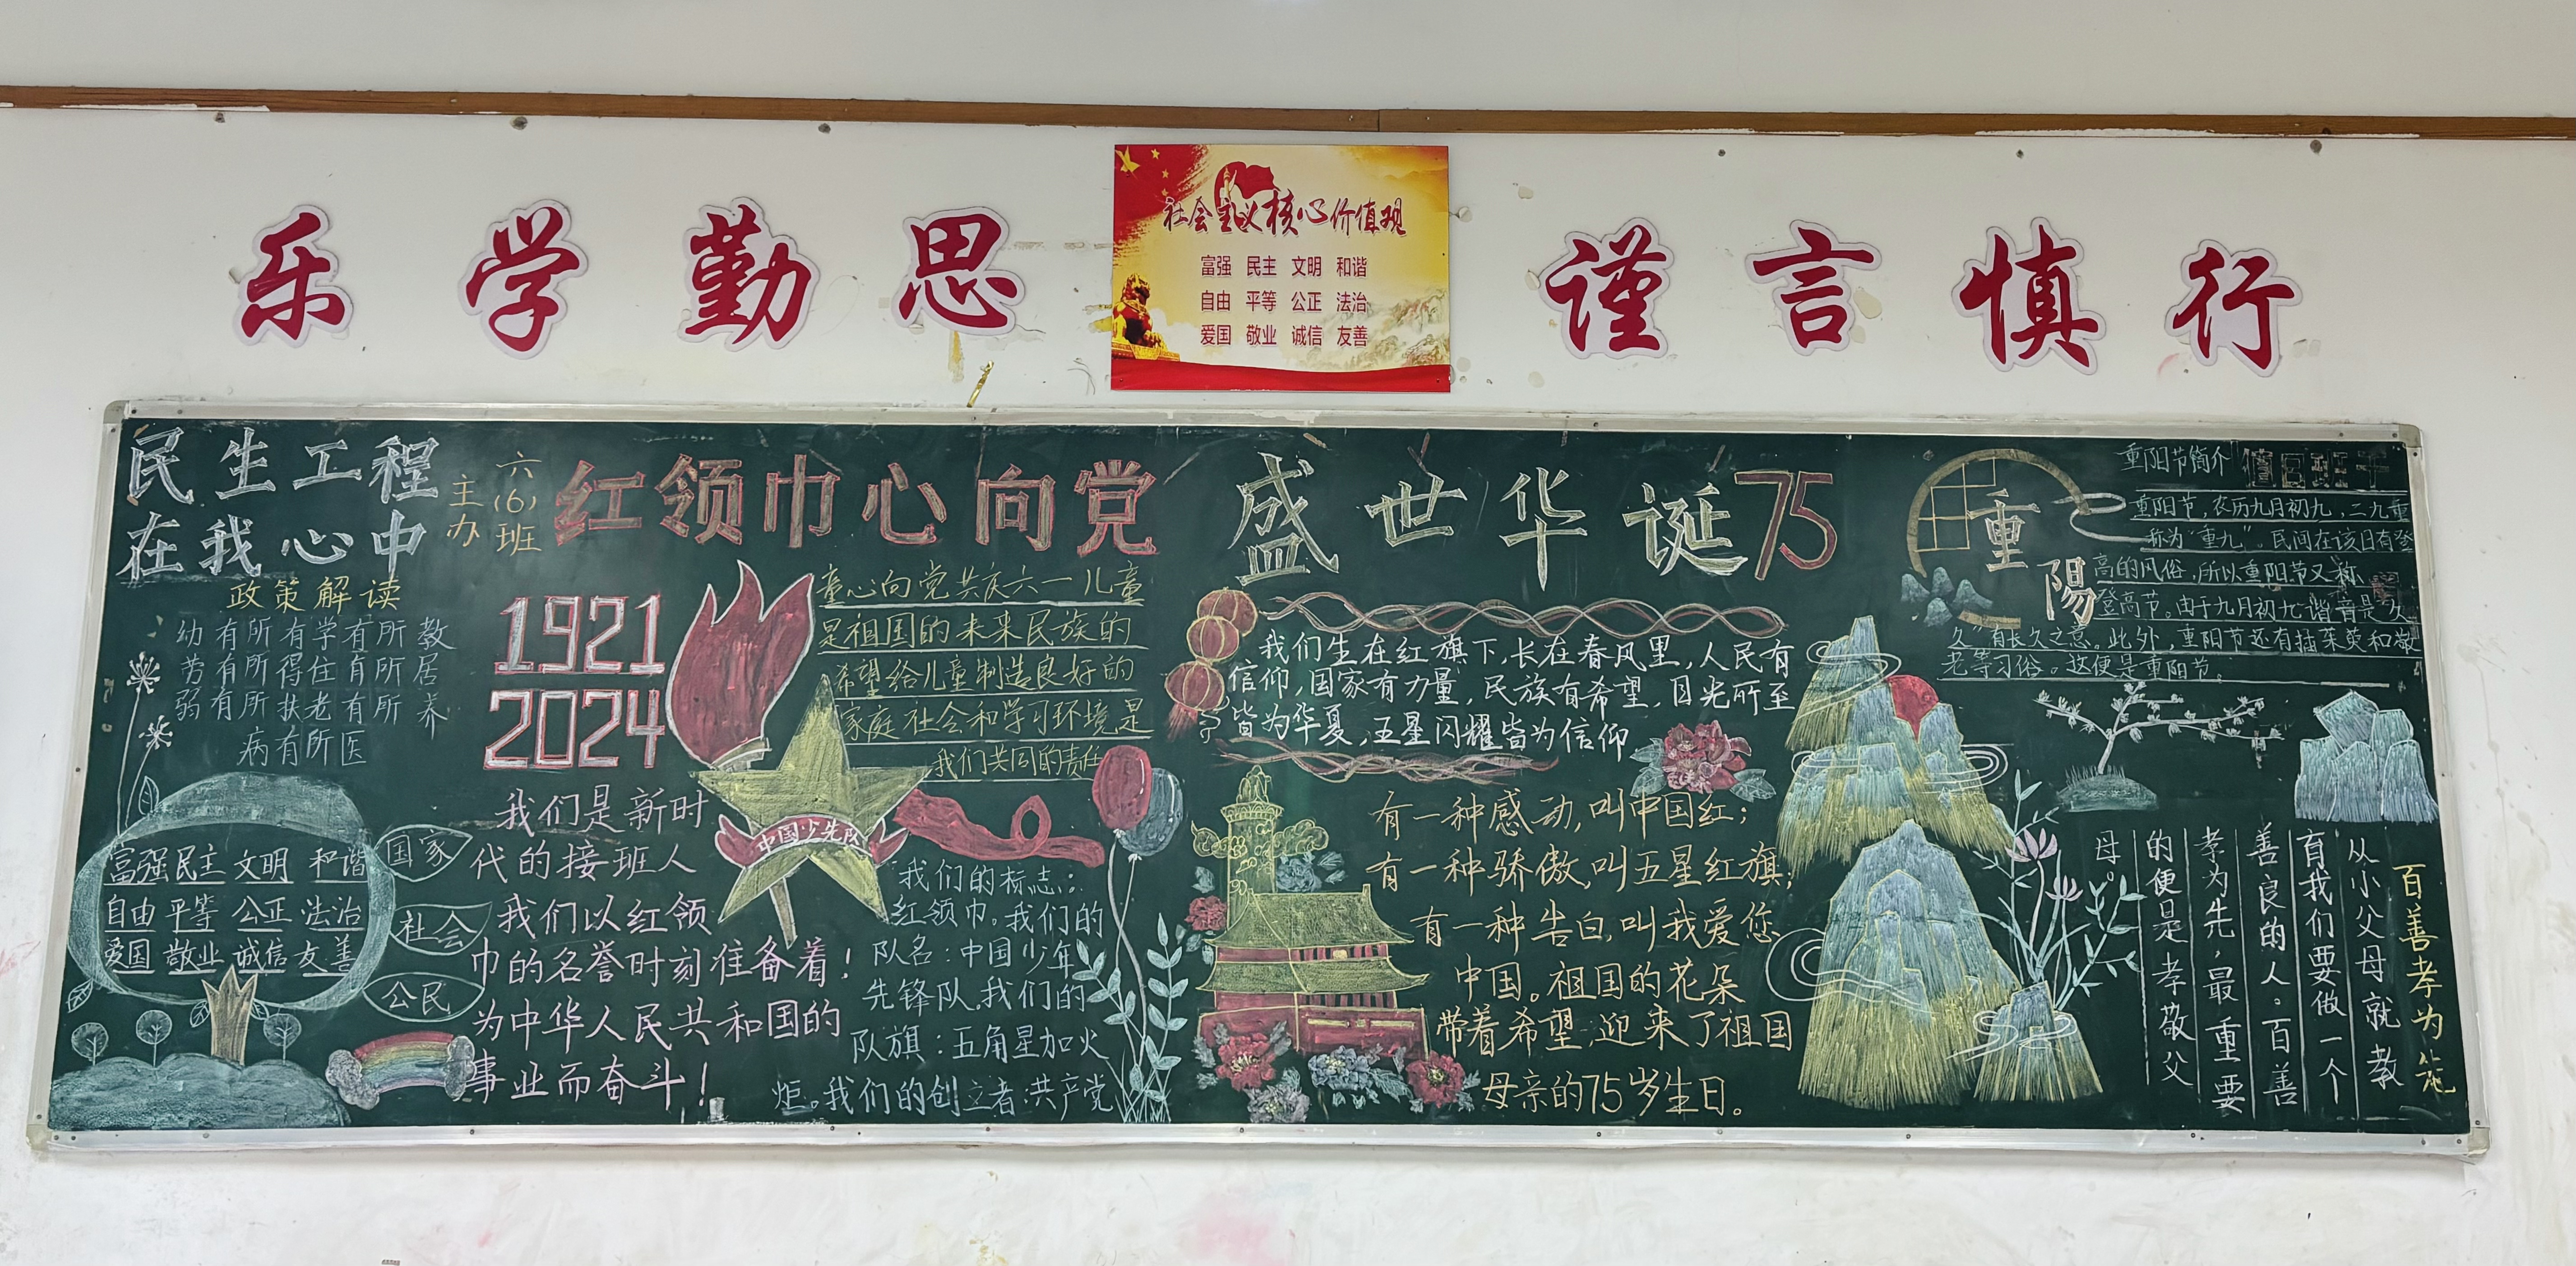 乐学勤思
社会主义核心价值观
富强 民主 文明 和谐
自由 平等 公正 法治
爱国 敬业 诚信 友善
谨言慎行
民生工程
在我心中
政策解读
幼有所有学有所教
劳有所得住有所居
弱有所扶老有所养
病有所医
富强 民主 文明 和谐
自由 平等 公正 法治
爱国 敬业 诚信 友善
国家
社会
公民
主办
六(6)班
红领巾心向党
1921
2024
童心向党共庆六一儿童
是祖国的未来民族的
希望给儿童制造良好的
家庭社会和学习环境是
我们共同的责任
中国少先队
我们是新时
代的接班人
我们以红领
巾的名誉时刻准备着!
为中华人民共和国的
事业而奋斗!
我们的标志:
红领巾。我们的
队名:中国少年
先锋队。我们的
队旗:五角星加火
炬。我们的创立者:共产党
盛世华诞75
我们生在红旗下,长在春风里,人民有
信仰,国家有力量,民族有希望,目光所至
皆为华夏,五星闪耀皆为信仰
有一种感动,叫中国红;
有一种骄傲,叫五星红旗;
有一种告白,叫我爱您
中国。祖国的花朵
带着希望,迎来了祖国
母亲的75岁生日。
重陽
重阳节简介
值日班干
重阳节,农历九月初九,二九重
称为“重九”。民间在该日有登
高的风俗,所以重阳节又称
登高节。由于九月初九谐音是“久
久”有长久之意。此外,重阳节还有插茱萸和敬
老等习俗。这便是重阳节。
百善孝为先
从小父母就教
有我们要做一个
善良的人。百善
孝为先,最重要
的便是孝敬父
母。